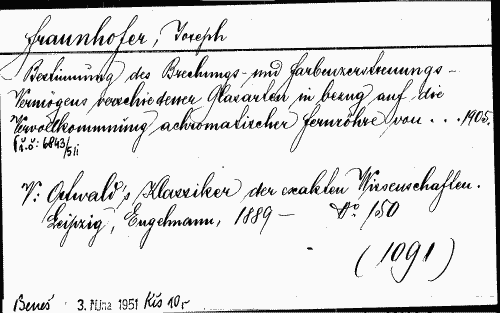 Fraunhofer, Joseph
Bestimmung des Brechungs- und Farbenzerstreuungs-
Vermögens verschiedener Glasarten in bezug auf die
Vervollkommnung achromatischer Fernröhre von ... 1905.
Př.č: 6843/511
V: Ostwald's Klassiker der exakten Wissenschaften.
Leipzig, Engelmann, 1889 – No. 150
(1091)
Beneš 3. Října 1951 Kčs 10,-